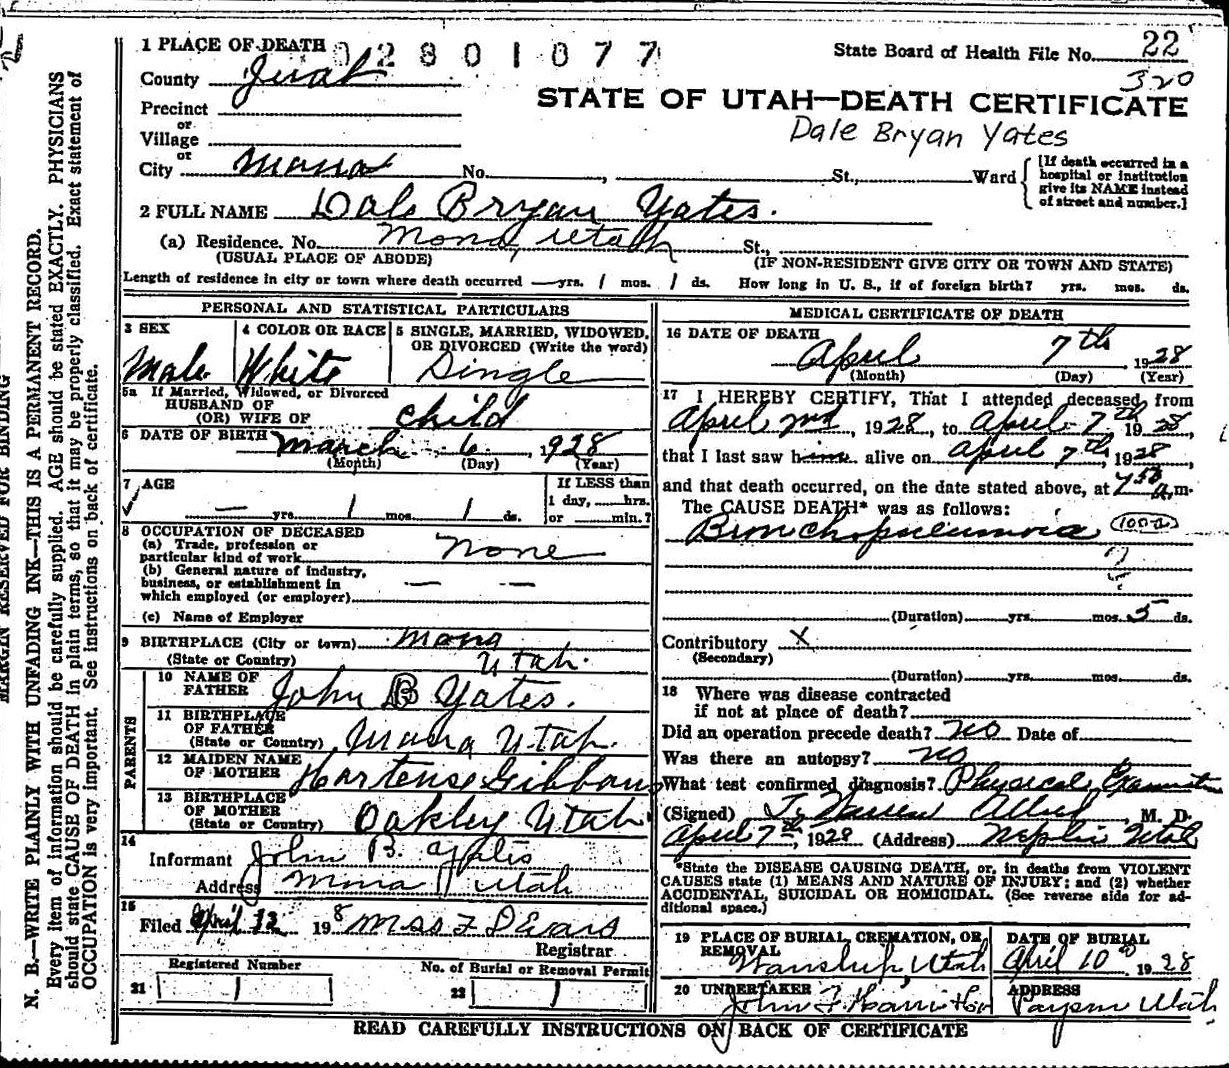 1 PLACE OF DEATH 02801077
State Board of Health File No. 22
320
County Juab
STATE OF UTAH—DEATH CERTIFICATE
Precinct
or
Village
Dale Bryan Yates
or
City Mona No. , St., Ward
[If death occurred in a hospital or institution give its NAME instead of street and number.]
2 FULL NAME Dale Bryan Yates.
(a) Residence, No. Mona, Utah St.,
(USUAL PLACE OF ABODE) (IF NON-RESIDENT GIVE CITY OR TOWN AND STATE)
Length of residence in city or town where death occurred — yrs. 1 mos. 1 ds. How long in U. S., if of foreign birth? yrs. mos. ds.
PERSONAL AND STATISTICAL PARTICULARS
3 SEX 4 COLOR OR RACE 5 SINGLE, MARRIED, WIDOWED, OR DIVORCED (Write the word)
Male White Single
5a If Married, Widowed, or Divorced
HUSBAND OF
(OR) WIFE OF child
6 DATE OF BIRTH March 6, 1928
(Month) (Day) (Year)
7 AGE If LESS than
— yrs. 1 mos. 1 ds. 1 day, hrs.
or min.?
8 OCCUPATION OF DECEASED
(a) Trade, profession or
particular kind of work None
(b) General nature of industry,
business, or establishment in — —
which employed (or employer)
(c) Name of Employer
9 BIRTHPLACE (City or town) Mona
(State or Country) Utah.
PARENTS
10 NAME OF FATHER John B Yates.
11 BIRTHPLACE OF FATHER (State or Country) Mona Utah.
12 MAIDEN NAME OF MOTHER Hortense Gibbons
13 BIRTHPLACE OF MOTHER (State or Country) Oakley Utah
14
Informant John B. Yates
Address Mona Utah
15
Filed April 12 1928
Registrar
Registered Number No. of Burial or Removal Permit
21 22
MEDICAL CERTIFICATE OF DEATH
16 DATE OF DEATH
April 7th 1928
(Month) (Day) (Year)
17 I HEREBY CERTIFY, That I attended deceased from
April 2nd, 1928, to April 7th 1928,
that I last saw him alive on April 7th, 1928,
and that death occurred, on the date stated above, at 7 50 a.m.
The CAUSE DEATH* was as follows:
Bronchopneumonia
?
(Duration) yrs. mos. 5 ds.
Contributory X
(Secondary)
(Duration) yrs. mos. ds.
18 Where was disease contracted
if not at place of death?
Did an operation precede death? No Date of
Was there an autopsy? No
What test confirmed diagnosis? Physical Examination
(Signed) Allred, M. D.
April 7th, 1928 (Address) Nephi Utah
*State the DISEASE CAUSING DEATH, or, in deaths from VIOLENT
CAUSES state (1) MEANS AND NATURE OF INJURY; and (2) whether
ACCIDENTAL, SUICIDAL OR HOMICIDAL. (See reverse side for ad-
ditional space.)
19 PLACE OF BURIAL, CREMATION, OR REMOVAL DATE OF BURIAL
Wanship, Utah April 10th, 1928
20 UNDERTAKER ADDRESS
John F. Payson Utah
READ CAREFULLY INSTRUCTIONS ON BACK OF CERTIFICATE
MARGIN RESERVED FOR BINDING
N. B.—WRITE PLAINLY WITH UNFADING INK—THIS IS A PERMANENT RECORD.
Every item of information should be carefully supplied. AGE should be stated EXACTLY. PHYSICIANS
should state CAUSE OF DEATH in plain terms, so that it may be properly classified. Exact statement of
OCCUPATION is very important. See instructions on back of certificate.